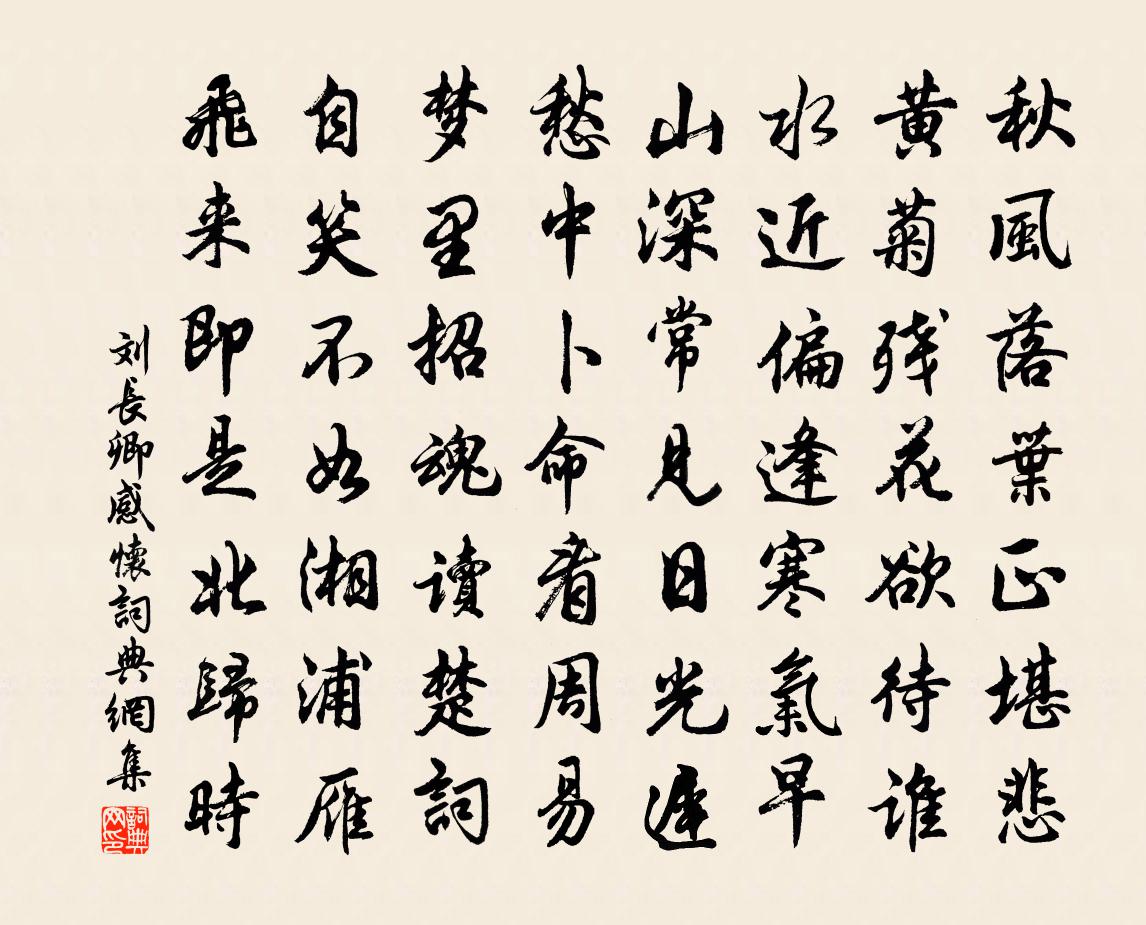 秋風落葉正堪悲
黄菊残花欲待谁
水近偏逢寒氣早
山深常見日光遲
愁中卜命看周易
梦里招魂讀楚詞
自笑不如湘浦雁
飛来即是北歸時
刘長卿感懷詞典網集
詞典网印